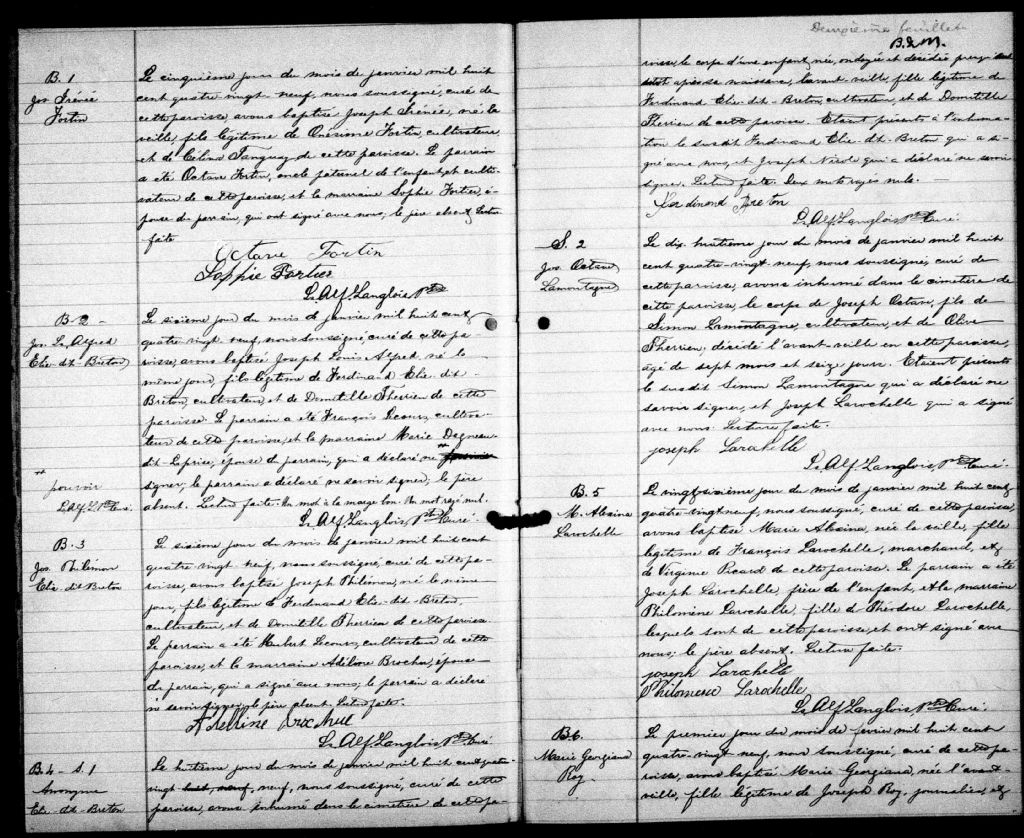 B. 1
Jos. Irénée
Fortin
Le cinquième jour du mois de janvier mil huit
cent quatre vingt neuf, nous soussigné, curé de
cette paroisse, avons baptisé Joseph Irénée, né la
veille, fils légitime de Onésime Fortin, cultivateur
et de Célina Tanguay de cette paroisse. Le parrain
a été Octave Fortin, oncle paternel de l'enfant, et culti-
vateur de cette paroisse, et la marraine Sophie Fortier, é-
pouse du parrain, qui ont signé avec nous, le père absent, Lecture
faite
Octave Fortin
Sophie Fortier
Ls. Alf. Langlois Ptre
B. 2 -
Jos. Ls. Alfred
Elie-dit-Breton
Le sixième jour du mois de janvier, mil huit cent
quatre vingt neuf, nous soussigné, curé de cette pa-
roisse, avons baptisé Joseph Louis Alfred né le
même jour, fils légitime de Ferdinand Elie-dit-
Breton, cultivateur, et de Domitille Therrien de cette
paroisse. Le parrain a été François Lecours, cultiva-
teur de cette paroisse, et la marraine Marie Dagneau-
dit-Laprise, épouse du parrain, qui a déclaré ne
signer, le parrain a déclaré ne savoir signer, le père
absent. Lecture faite. Un mot à la marge bon. Un mot rayé nul.
Ls. Alf. Langlois Ptre Curé
pouvoir
L. Alf. L. Ptre Curé.
B. 3
Jos. Philémon
Elie dit Breton
Le sixième jour du mois de janvier mil huit cent
quatre vingt neuf, nous soussigné, curé de cette pa-
roisse, avons baptisé Joseph Philémon, né le même
jour, fils légitime de Ferdinand Elie-dit-Breton,
cultivateur, et de Domitille Therrien de cette paroisse.
Le parrain a été Hubert Lecours, cultivateur de cette
paroisse, et la marraine Adeline Brochu, épouse
du parrain, qui a signé avec nous; le parrain a déclaré
ne savoir signer, le père absent. Lecture faite.
Adelline Brochue
Ls. Alf. Langlois Ptre Curé
B. 4 - S. 1
Anonyme
Elie-dit-Breton
Le huitième jour du mois de janvier mil huit cent quatre
vingt huit, neuf, neuf, nous soussigné, curé de cette
paroisse, avons inhumé dans le cimetière de cette pa-
Deuxième feuillet
B. & M.
roisse, le corps d'une enfant, née, ondoyée et décédée presqu'
aussitôt après sa naissance, l'avant-veille, fille légitime de
Ferdinand Elie-dit-Breton, cultivateur, et de Domitille
Therrien de cette paroisse. Etaient présents à l'inhuma-
tion le susdit Ferdinand Elie-dit-Breton qui a si-
gné avec nous, et Joseph Nicole qui a déclaré ne savoir
signer. Lecture faite. Deux mots rayés nuls.
Ferdinond Breton
Ls. Alf. Langlois Ptre Curé.
S. 2
Jos. Octave
Lamontagne
Le dix huitième jour du mois de janvier mil huit
cent quatre-vingt neuf, nous soussigné, curé de
cette paroisse, avons inhumé dans le cimetière de
cette paroisse, le corps de Joseph Octave, fils de
Simon Lamontagne, cultivateur, et de Olive
Therrien, décédé l'avant-veille en cette paroisse,
agé de sept mois et seize jours. Etaient présents
le susdit Simon Lamontagne qui a déclaré ne
savoir signer, et Joseph Larochelle qui a signé
avec nous. Lecture faite.
joseph Larochelle
Ls. Alf. Langlois Ptre Curé.
B. 5
M. Alexina
Larochelle
Le vingt-sixième jour du mois de janvier mil huit cent
quatre vingt neuf, nous soussigné, curé de cette paroisse,
avons baptisé Marie Alexina, née la veille, fille
légitime de François Larochelle, marchand, et
de Virginie Picard de cette paroisse. Le parrain a été
Joseph Larochelle, frère de l'enfant, et la marraine
Philomène Larochelle, fille de Théodore Larochelle,
lesquels sont de cette paroisse, et ont signé avec
nous; le père absent. Lecture faite.
joseph Larochelle
Philomene Larochelle
Ls. Alf. Langlois Ptre Curé.
B. 6.
Marie Georgiana
Roy.
Le premier jour du mois de février mil huit cent
quatre-vingt-neuf, nous soussigné, curé de cette pa-
roisse, avons baptisé Marie Georgiana, née l'avant-
veille, fille légitime de Joseph Roy, journalier, et